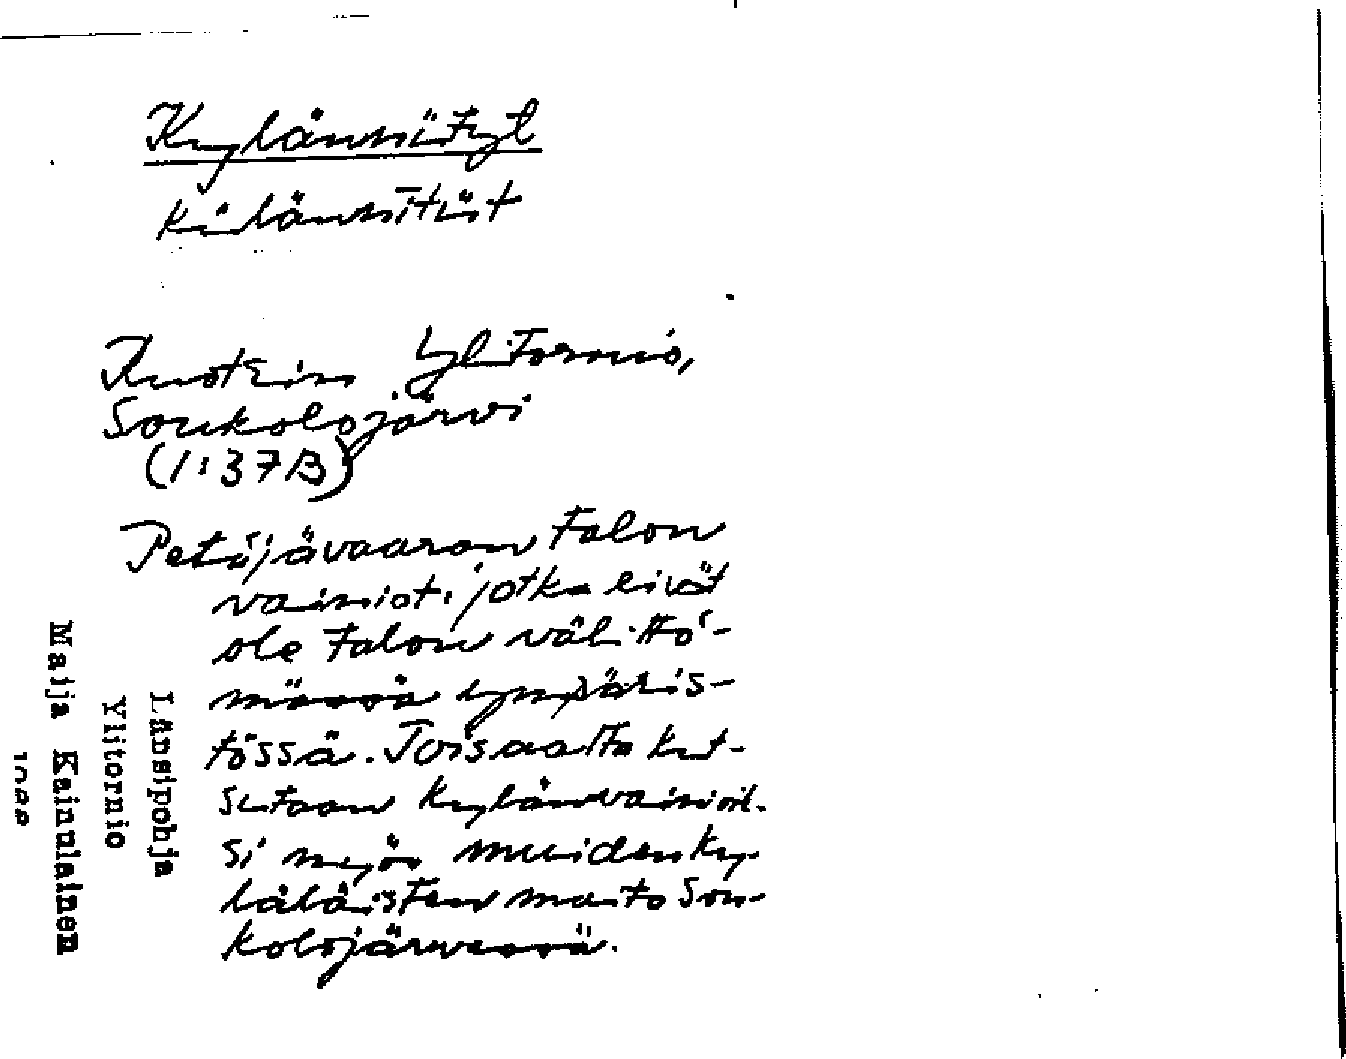 Kylänniityt
külänniitüt
Ruotsin Ylitornio,
Soukolojärvi
(1:37B)
Petäjävaaran talon
vainiot, jotka eivät
ole talon välittö-
mässä ympäris-
tössä. Toisaalta kut-
sutaan kylänvainioik-
si myös muiden ky-
läläisten maita Sou-
kolojärvessä.
Länsipohja
Ylitornio
Maija Kainulainen